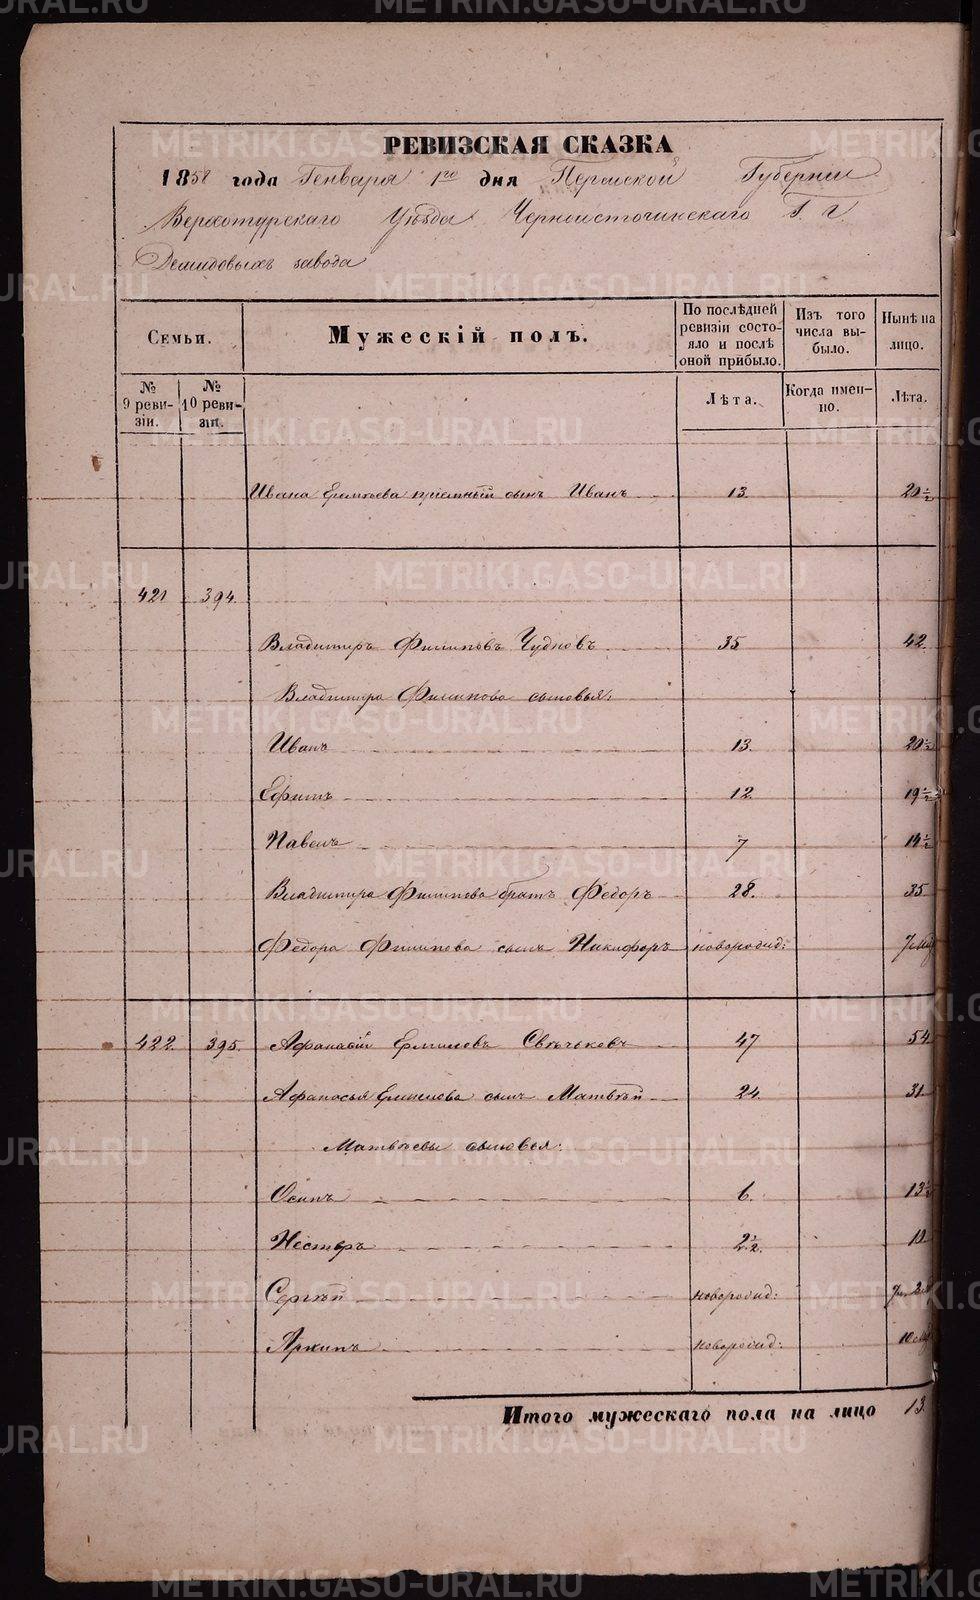 РЕВИЗСКАЯ СКАЗКА
1858 года Генваря 1го дня Пермской Губернии
Верхотурскаго Уѣзда Черноисточинскаго Г. г.
Демидовыхъ завода
Семьи.
Мужескій полъ.
По послѣдней ревизіи состояло и послѣ оной прибыло.
Изъ того числа выбыло.
Нынѣ на лицо.
№ 9 ревизіи.
№ 10 ревизіи.
Лѣта.
Когда именно.
Лѣта.
Ивана пріемный сынъ Иванъ 13. 20 ½
421 394.
Владимиръ Филиповъ Чудновъ 35 42.
Владимира Филипова сыновья:
Иванъ 13. 20 ½
Ефимъ 12. 19 ½
Павелъ 7 14 ½
Владимира Филипова братъ Федоръ 28. 35
Федора Филипова сынъ Никифоръ новорожд:
422. 395. Афанасій Ермиловъ Свѣчьковъ 47 54
Афанасья Ермилова сынъ Матвѣй 24. 31
Матвѣевы сыновья:
Осипъ 6. 13 ½
Нестеръ 2 ½. 10
Сергѣй новорожд:
Архипъ новорожд:
Итого мужескаго пола на лицо 13
METRIKI.GASO-URAL.RU